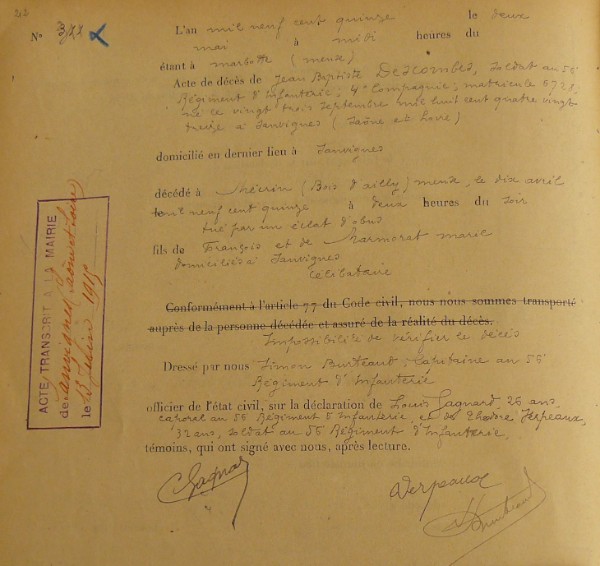 L'an mil neuf cent quinze le deux
N° 3/22
mai à midi heures du
étant à marbotte (meuse)
Acte de décès de Jean Baptiste Descombes, soldat au 56
Régiment d'Infanterie, 4e Compagnie, matricule
né le vingt trois septembre mil huit cent quatre vingt
treize à Sauvignes (Saône et Loire)
domicilié en dernier lieu à Sauvignes
décédé à Mécrin (Bois d'ailly) meuse, le dix avril
mil neuf cent quinze à deux heures du soir
tué par un éclat d'obus
fils de François et de Marmorat marie
domiciliés à Sauvignes
célibataire
Conformément à l'article 77 du Code civil, nous nous sommes transporté
auprès de la personne décédée et assuré de la réalité du décès.
Impossibilité de vérifier le décès
Dressé par nous Simon, Capitaine au 56
Régiment d'Infanterie
officier de l'état civil, sur la déclaration de Louis Gagnard, 26 ans,
caporal au 56 Régiment d'Infanterie et de Verpeaux,
32 ans, soldat au 56 Régiment d'Infanterie,
témoins, qui ont signé avec nous, après lecture.
Gagnard
Verpeaux
ACTE TRANSCRIT A LA MAIRIE
de Sanvignes Saône et Loire
le 13 Juin 1915